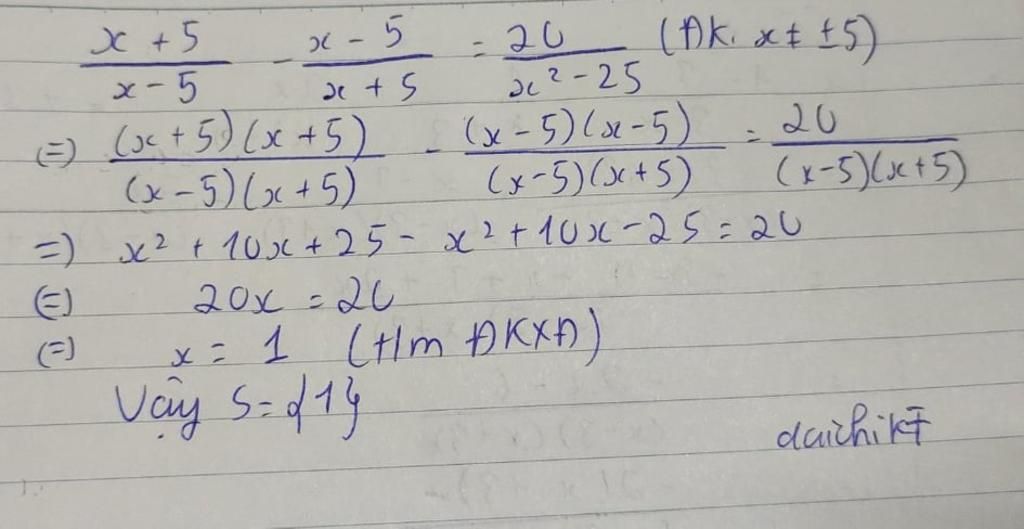 x + 5 / x - 5 - x - 5 / x + 5 = 20 / x² - 25 (ĐK. x ≠ ±5)
(=) (x + 5)(x + 5) / (x - 5)(x + 5) - (x - 5)(x - 5) / (x - 5)(x + 5) = 20 / (x - 5)(x + 5)
=) x² + 10x + 25 - x² + 10x - 25 = 20
(=) 20x = 20
(=) x = 1 (t/m ĐKXĐ)
Vậy S = {1}
daichikt